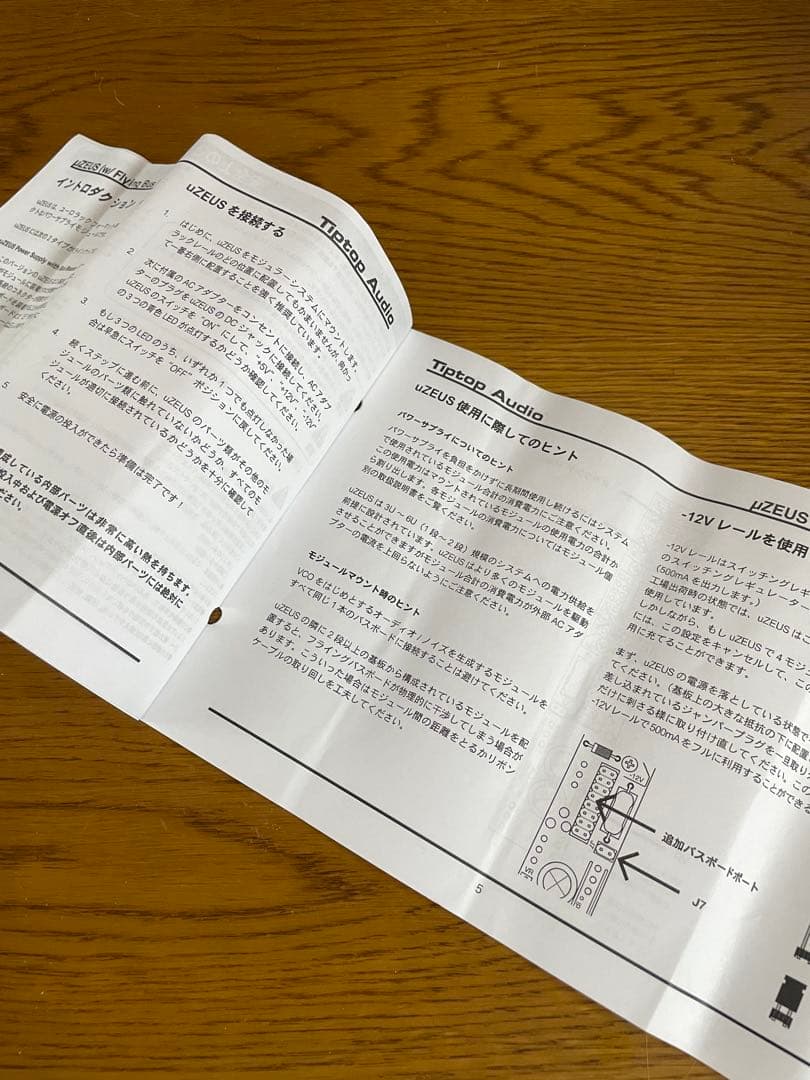 μZEUS (w/ Flying Bus
イントロダクション
uZEUSは、ユーロラック
uZEUSには次の1タイプ
uZEUS Power Supply
Tiptop Audio
uZEUS を接続する
1. はじめに、uZEUSをモジュラーシステムにマウントします。
ラックレールのどの位置に配置してもかまいませんが、向かっ
て一番右側に配置することを強く推奨しています。
2. 次に付属のACアダプターをコンセントに接続し、ACアダプ
ターのプラグをuZEUSのDCジャックに接続してください。
3. uZEUSのスイッチを"ON"にして、"+5V"、"+12V"、"-12V"
の3つの黄色LEDが点灯するかどうか確認してください。
もし3つのLEDのうち、いずれか1つでも点灯しなかった場
合は早急にスイッチを"OFF"ポジションに戻してください。
4. 続くステップに進む前に、uZEUSのパーツ類がその他のモ
ジュールのパーツ類に触れていないかどうか、すべてのモ
ジュールが適切に接続されているかどうかを十分に確認して
ください
5 安全に電源の投入ができたら準備は完了です!
成している内部パーツは非常に高い熱を持ちます。
投入中および電源オフ直後は内部パーツには絶対に
ださい。
Tiptop Audio
uZEUS 使用に際してのヒント
パワーサプライについてのヒント
パワーサプライを負担をかけずに長期間使用し続けるにはシステム
で使用されているモジュール合計の消費電力にご注意ください。
この使用電力はマウントされているモジュールの使用電力の合計か
ら割り出します。各モジュールの消費電力についてはモジュール個
別の取扱説明書をご覧ください。
uZEUSは3U〜6U(1段〜2段)規模のシステムへの電力供給を
前提に設計されています。uZEUSはより多くのモジュールを駆動
させることができますがモジュール合計の消費電力が外部ACアダ
プターの電流を上回らないようにご注意ください。
モジュールマウント時のヒント
VCOをはじめとするオーディオ/ノイズを生成するモジュールを
すべて同じ1本のバスボードに接続することは避けてください。
uZEUSの隣に2段以上の基板から構成されているモジュールを配
置すると、フライングバスボードが物理的に干渉してしまう場合が
あります。こういった場合はモジュール間の距離をとるかリボン
ケーブルの取り回しを工夫してください。
5
μZEUS
-12V レールを使用
-12Vレールはスイッチングレギ
のスイッチングレギュレーター
(500mAを出力します。)
工場出荷時の状態では、uZEUSはこ
使用しています。
しかしながら、もしuZEUSで4モジ
には、この設定をキャンセルして、この
用に充てることができます。
まず、uZEUSの電源を落としている状態で
てください。(基板上の大きな抵抗の下に配置
差し込まれているジャンパープラグを一旦取り
だけに刺さる様に取り付け直してください。この
-12Vレールで500mAをフルに利用することができる
-12V
追加バスボードポート
J7